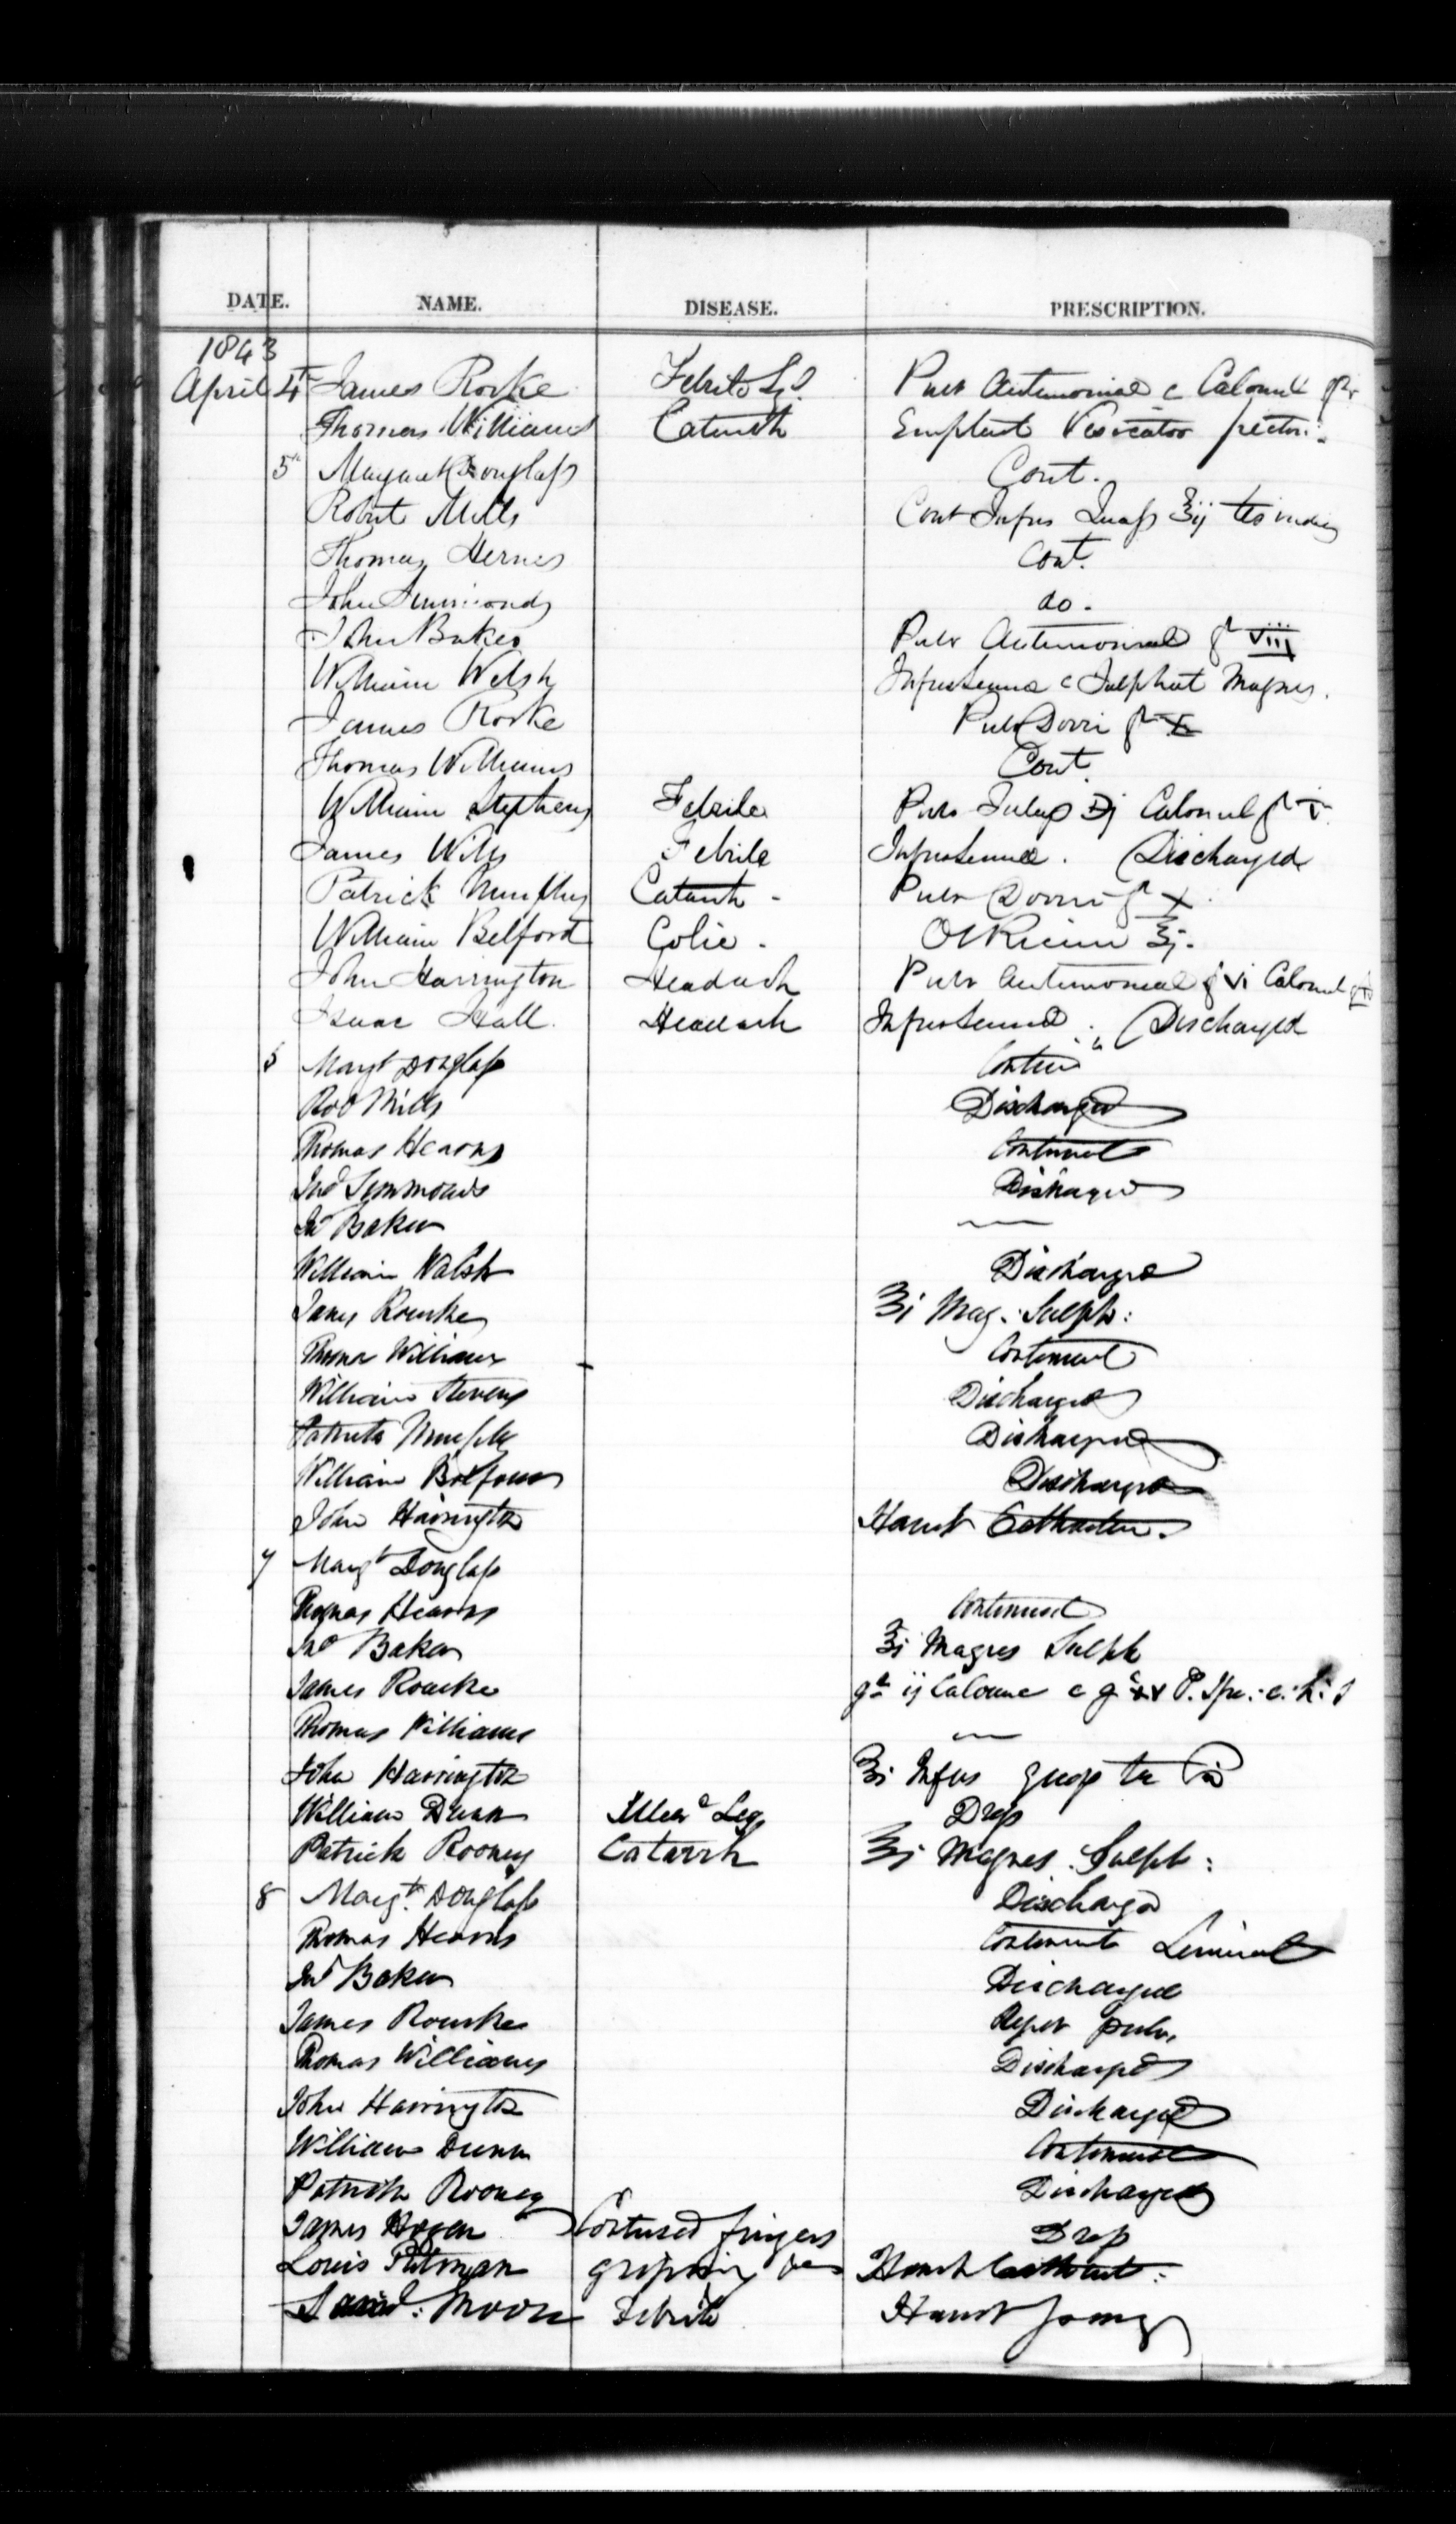 DATE. NAME. DISEASE. PRESCRIPTION.
1843
April 4th James Rorke Febrile Pulv Antimonial c Calomel gr
Thomas Williams Catarrh Emplast Vesicator pectori.
5th Margaret Douglass Cont.
Robert Mills Cont Infus Quass ℥ij
Thomas Hernes Cont.
John Simmonds do.
John Baker Pulv Antimonial gr viij
William Welsh Infus Sennae c Sulphat Magnes.
James Rorke Pulv Dovri gr x
Thomas Williams Cont.
William Stephens Febrile Pulv Jalap ℈j Calomel gr v
James Wills Febrile Infus Sennae. Discharged
Patrick Murphy Catarrh - Pulv Dovri gr x.
William Belford Colic. Ol Ricini ℥j.
John Harrington Headach Pulv Antimonial gr vi Calomel
Isaac Hall. Headach Infus Sennae. Discharged
6 Margt Douglass Contin
Rob Mills Discharged
Thomas Hearns Continued
Jno Simmonds Discharged
Jno Baker —
William Walsh Discharged
James Rourke ℥i Mag. Sulph:
Thomas Williams Continued
William Stevens Discharged
Patrick Murphy Discharged
William Belfour Discharged
John Harrington Haust Cathartic.
7 Margt Douglass
Thomas Hearns Continued
Jno Baker ℥i Magnes Sulph
James Rourke gr ij Calome c g xv P. Ipe: c. h: s
Thomas Williams —
John Harrington ℥i Infus
William Dunn Ulcer Leg Drsg
Patrick Rooney Catarrh ℥i Magnes. Sulph:
8 Margt. Douglass Discharged
Thomas Hearns Continued Liniment
Jno Baker Discharged
James Rourke Repet pulv.
Thomas Williams Discharged
John Harrington Discharged
William Dunn Continued
Patrick Rooney Discharged
James Hogan Contused fingers Drsg
Louis Putman griping Haust Cathart:
Moon Febrile Haust